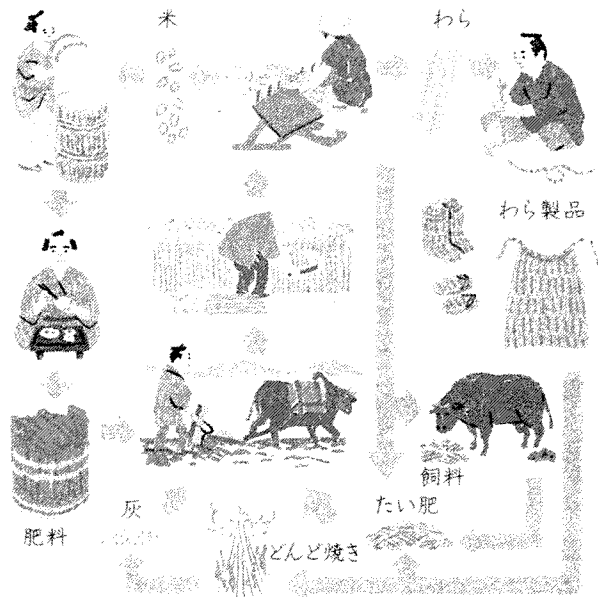 米
わら
わら製品
飼料
たい肥
灰
肥料
どんど焼き